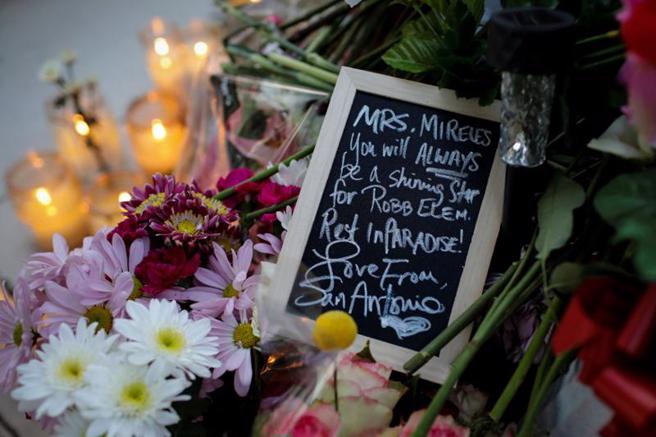 MRS. MIRELES
You will ALWAYS
be a shining star
for ROBB ELEM.
Rest In PARADISE!
Love From,
San Antonio